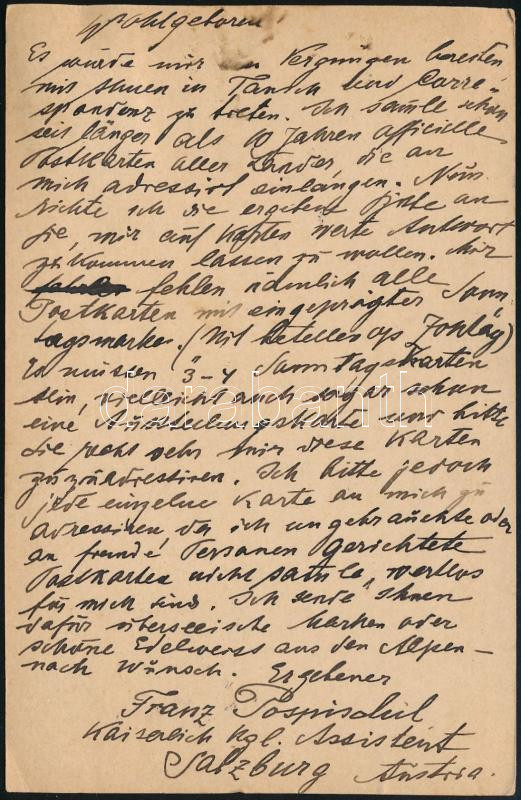 Wohlgeboren
Es würde mir n Vergnügen bereiten
mit Ihnen in Tausch und Corre-
spondenz zu treten. Ich samle schon
seit länger als 10 Jahren officielle
Postkarten aller Länder, die an
mich adressirt einlangen. Nun
richte ich die ergebene Bitte an
Sie, mir auf Karten werte Antwort
zukommen lassen zu wollen. Mir
fehlen nämlich alle
Postkarten mit eingeprägter Sonn
tagsmarke. (Nit betelles op Zondag)
Es müssen 3-4 Sonntagskarten
sein, vielleicht auch sogar schon
eine Ausstellungskarte und bitte
Sie recht sehr mir diese Karten
zuzuadressiren. Ich bitte jedoch
jede einzelne Karte an mich zu
adressiren, da ich ungebrauchte oder
an fremde Personen gerichtete
Postkarten nicht samle, wertlos
für mich sind. Ich sende Ihnen
dafür überseeische Marken oder
schöne Edelweiss aus den Alpen-
nach Wunsch. Ergebener
Franz Pospischil
Kaiserlich Kgl. Assistent
Salzburg Austria.
darabanth